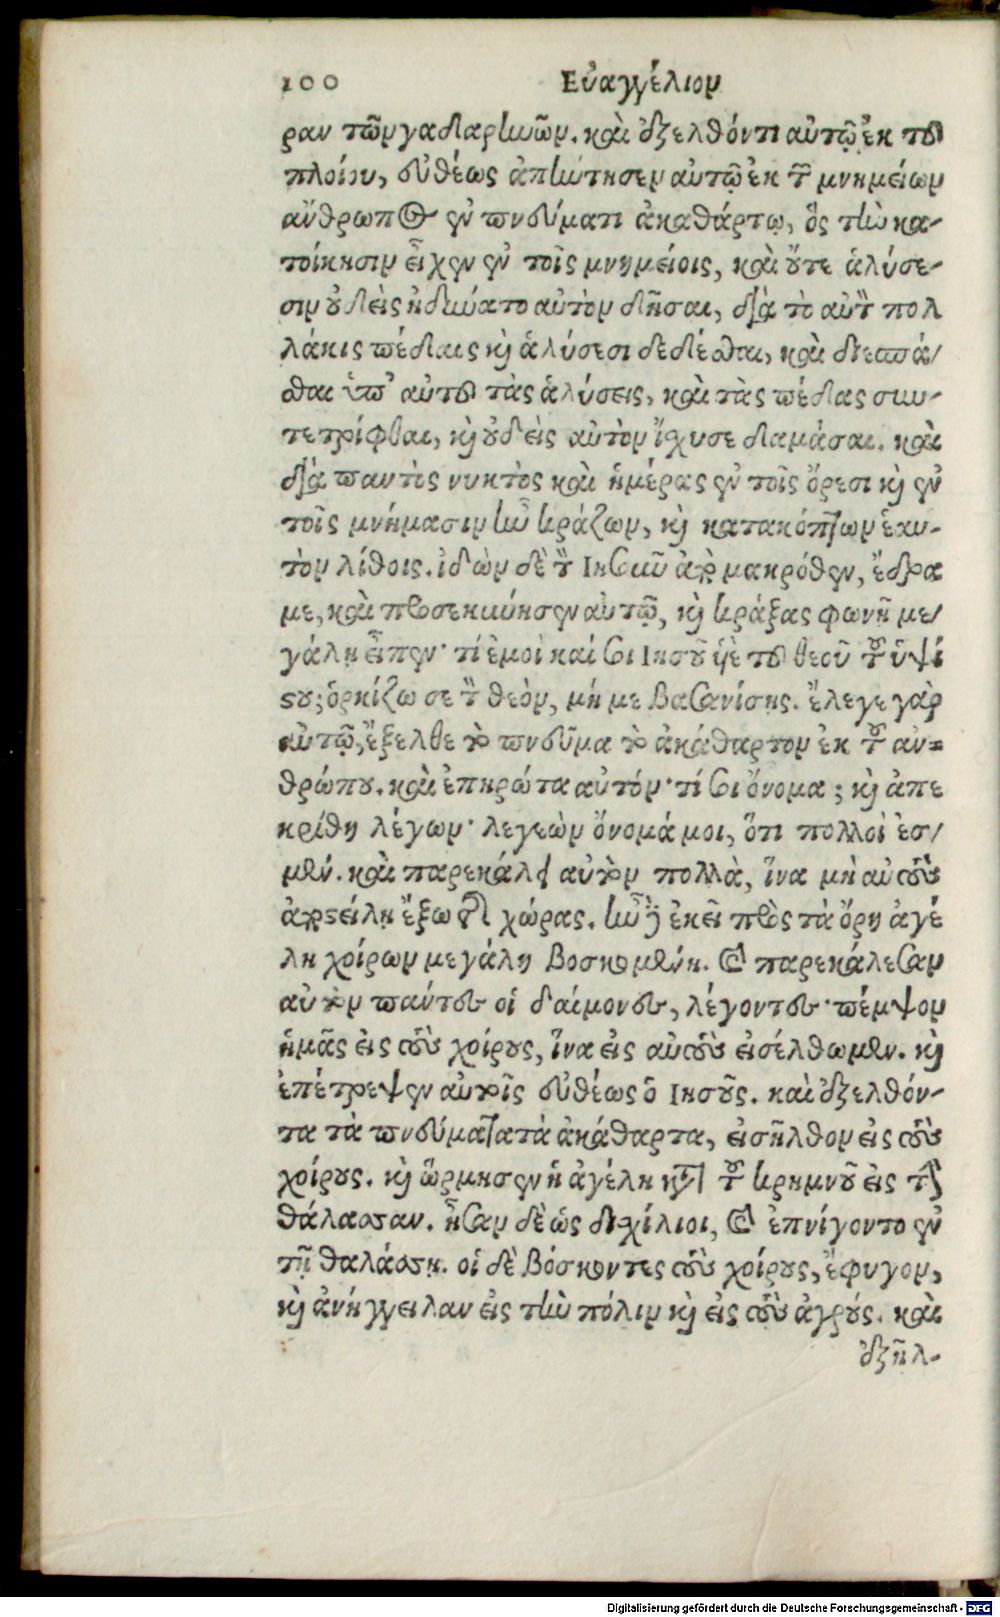 100 Εὐαγγέλιον
ραν τῶν γαδαρηνῶν. καὶ ἐξελθόντι αὐτῷ ἐκ τοῦ
πλοίου, εὐθέως ἀπήντησεν αὐτῷ ἐκ τῶν μνημείων
ἄνθρωπος ἐν πνεύματι ἀκαθάρτῳ, ὃς τὴν κα-
τοίκησιν εἶχεν ἐν τοῖς μνημείοις, καὶ οὔτε ἁλύσε-
σιν οὐδεὶς ἠδύνατο αὐτὸν δῆσαι, διὰ τὸ αὐτὸν πολ
λάκις πέδαις καὶ ἁλύσεσι δεδέσθαι, καὶ διεσπά/
σθαι ὑπ' αὐτοῦ τὰς ἁλύσεις, καὶ τὰς πέδας συν-
τετρίφθαι, καὶ οὐδεὶς αὐτὸν ἴσχυσε δαμάσαι. καὶ
διὰ παντὸς νυκτὸς καὶ ἡμέρας ἐν τοῖς ὄρεσι καὶ ἐν
τοῖς μνήμασιν ἦν κράζων, καὶ κατακόπτων ἑαυ-
τὸν λίθοις. ἰδὼν δὲ τὸν Ιησοῦν ἀπὸ μακρόθεν, ἔδρα
με, καὶ προσεκύνησεν αὐτῷ, καὶ κράξας φωνῇ με/
γάλῃ εἶπεν· τί ἐμοὶ καί σοι Ιησοῦ ὑιὲ τοῦ θεοῦ τοῦ ὑψί
στου; ὁρκίζω σε τὸν θεόν, μή με βασανίσῃς. ἔλεγε γὰρ
αὐτῷ, ἔξελθε τὸ πνεῦμα τὸ ἀκάθαρτον ἐκ τοῦ ἀν=
θρώπου. καὶ ἐπηρώτα αὐτόν· τί σοι ὄνομα; καὶ ἀπε
κρίθη λέγων· λεγεὼν ὄνομά μοι, ὅτι πολλοί ἐσ/
μεν. καὶ παρεκάλει αὐτὸν πολλὰ, ἵνα μὴ αὐτοὺς
ἀποστείλῃ ἔξω τῆς χώρας. ἦν δὲ ἐκεῖ πρὸς τὰ ὄρη ἀγέ
λη χοίρων μεγάλη βοσκομένη. καὶ παρεκάλεσαν
αὐτὸν πάντες οἱ δαίμονες, λέγοντες· πέμψον
ἡμᾶς εἰς τοὺς χοίρους, ἵνα εἰς αὐτοὺς εἰσέλθωμεν. καὶ
ἐπέτρεψεν αὐτοῖς εὐθέως ὁ Ιησοῦς. καὶ ἐξελθόν-
τα τὰ πνεύματα τὰ ἀκάθαρτα, εἰσῆλθον εἰς τοὺς
χοίρους. καὶ ὥρμησεν ἡ ἀγέλη κατὰ τοῦ κρημνοῦ εἰς τὴν
θάλασσαν. ἦσαν δὲ ὡς δισχίλιοι, καὶ ἐπνίγοντο ἐν
τῇ θαλάσσῃ. οἱ δὲ βόσκοντες τοὺς χοίρους, ἔφυγον,
καὶ ἀνήγγειλαν εἰς τὴν πόλιν καὶ εἰς τοὺς ἀγρούς. καὶ
ἐξῆλ-
Digitalisierung gefördert durch die Deutsche Forschungsgemeinschaft - DFG